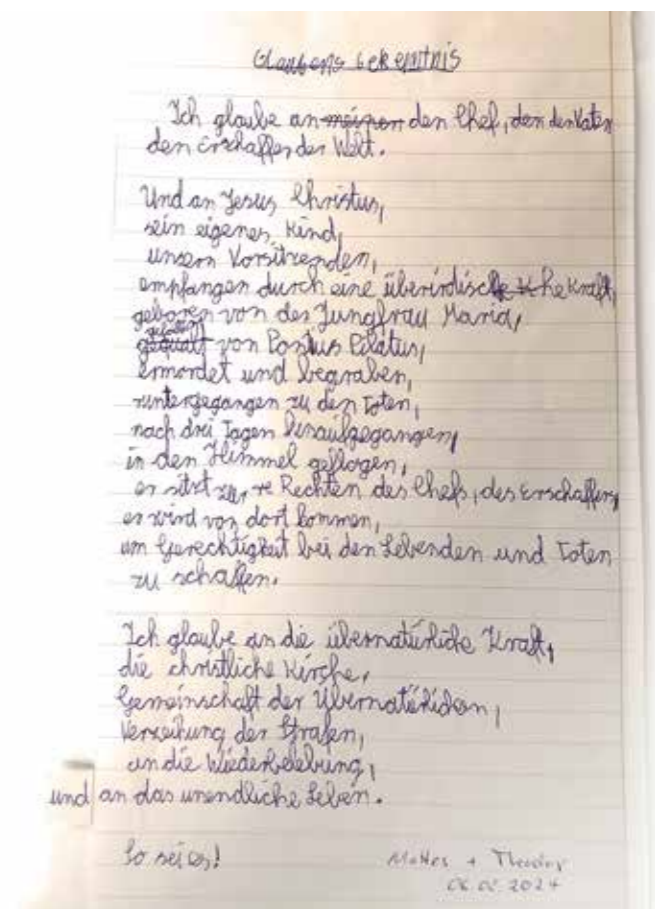 Glaubens bekenntnis
Ich glaube an meinen den Chef, den den Vater
den Erschaffer der Welt.
Und an Jesus Christus,
sein eigenes Kind,
unsern Vorsitzenden,
empfangen durch eine überirdische Kraft,
geboren von der Jungfrau Maria,
gefoltert
gequält von Pontius Pilatus,
ermordet und begraben,
runtergegangen zu den Toten,
nach drei Tagen hinaufgegangen,
in den Himmel geflogen,
er sitzt zur Rechten des Chefs, des Erschaffers,
er wird von dort kommen,
um Gerechtigkeit bei den Lebenden und Toten
zu schaffen.
Ich glaube an die übernatürliche Kraft,
die christliche Kirche,
Gemeinschaft der Übernatürlichen,
Verzeihung der Strafen,
an die Wiederbelebung,
und an das unendliche Leben.
So sei es!
Mattes + Theodor
06.02.2024